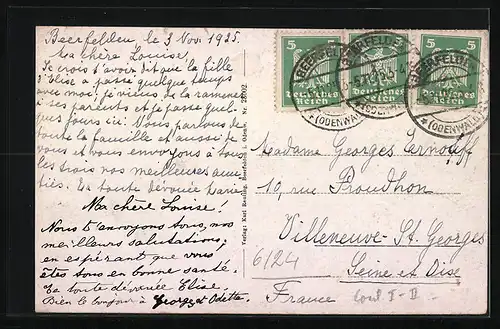 Beerfelden le 3 Nov. 1925.
Ma chère Louise!
Je crois t'avoir dit que la fille
d'Elise a passé quelque temps
avec moi; je viens de la ramener
à ses parents et je passe quel-
ques jours ici. Nous parlons de
toute la famille et aussi de
vous et vous envoyons à tous
les trois nos meilleures ami-
tiés. Ta toute dévouée Marie
Ma chère Louise!
Nous t'envoyons tous, nos
meilleurs salutations;
en espérant que vous
êtes tous en bonne santé.
Ta toute dévouée Elise.
Bien le bonjour à Georges et Odette.
Verlag: Kurt Beerfelden i. Odenw. Nr.
5 5
5 5
5 5
Deutsches Reich
Deutsches Reich
Deutsches Reich
BEERFELDEN
*(ODENWALD)
BEERFELDEN
BEERFELDEN
*(ODENWALD)
Madame Georges Carnouff
10, rue Proudhon
Villeneuve-St. Georges
6124
Seine et Oise
France
I-II